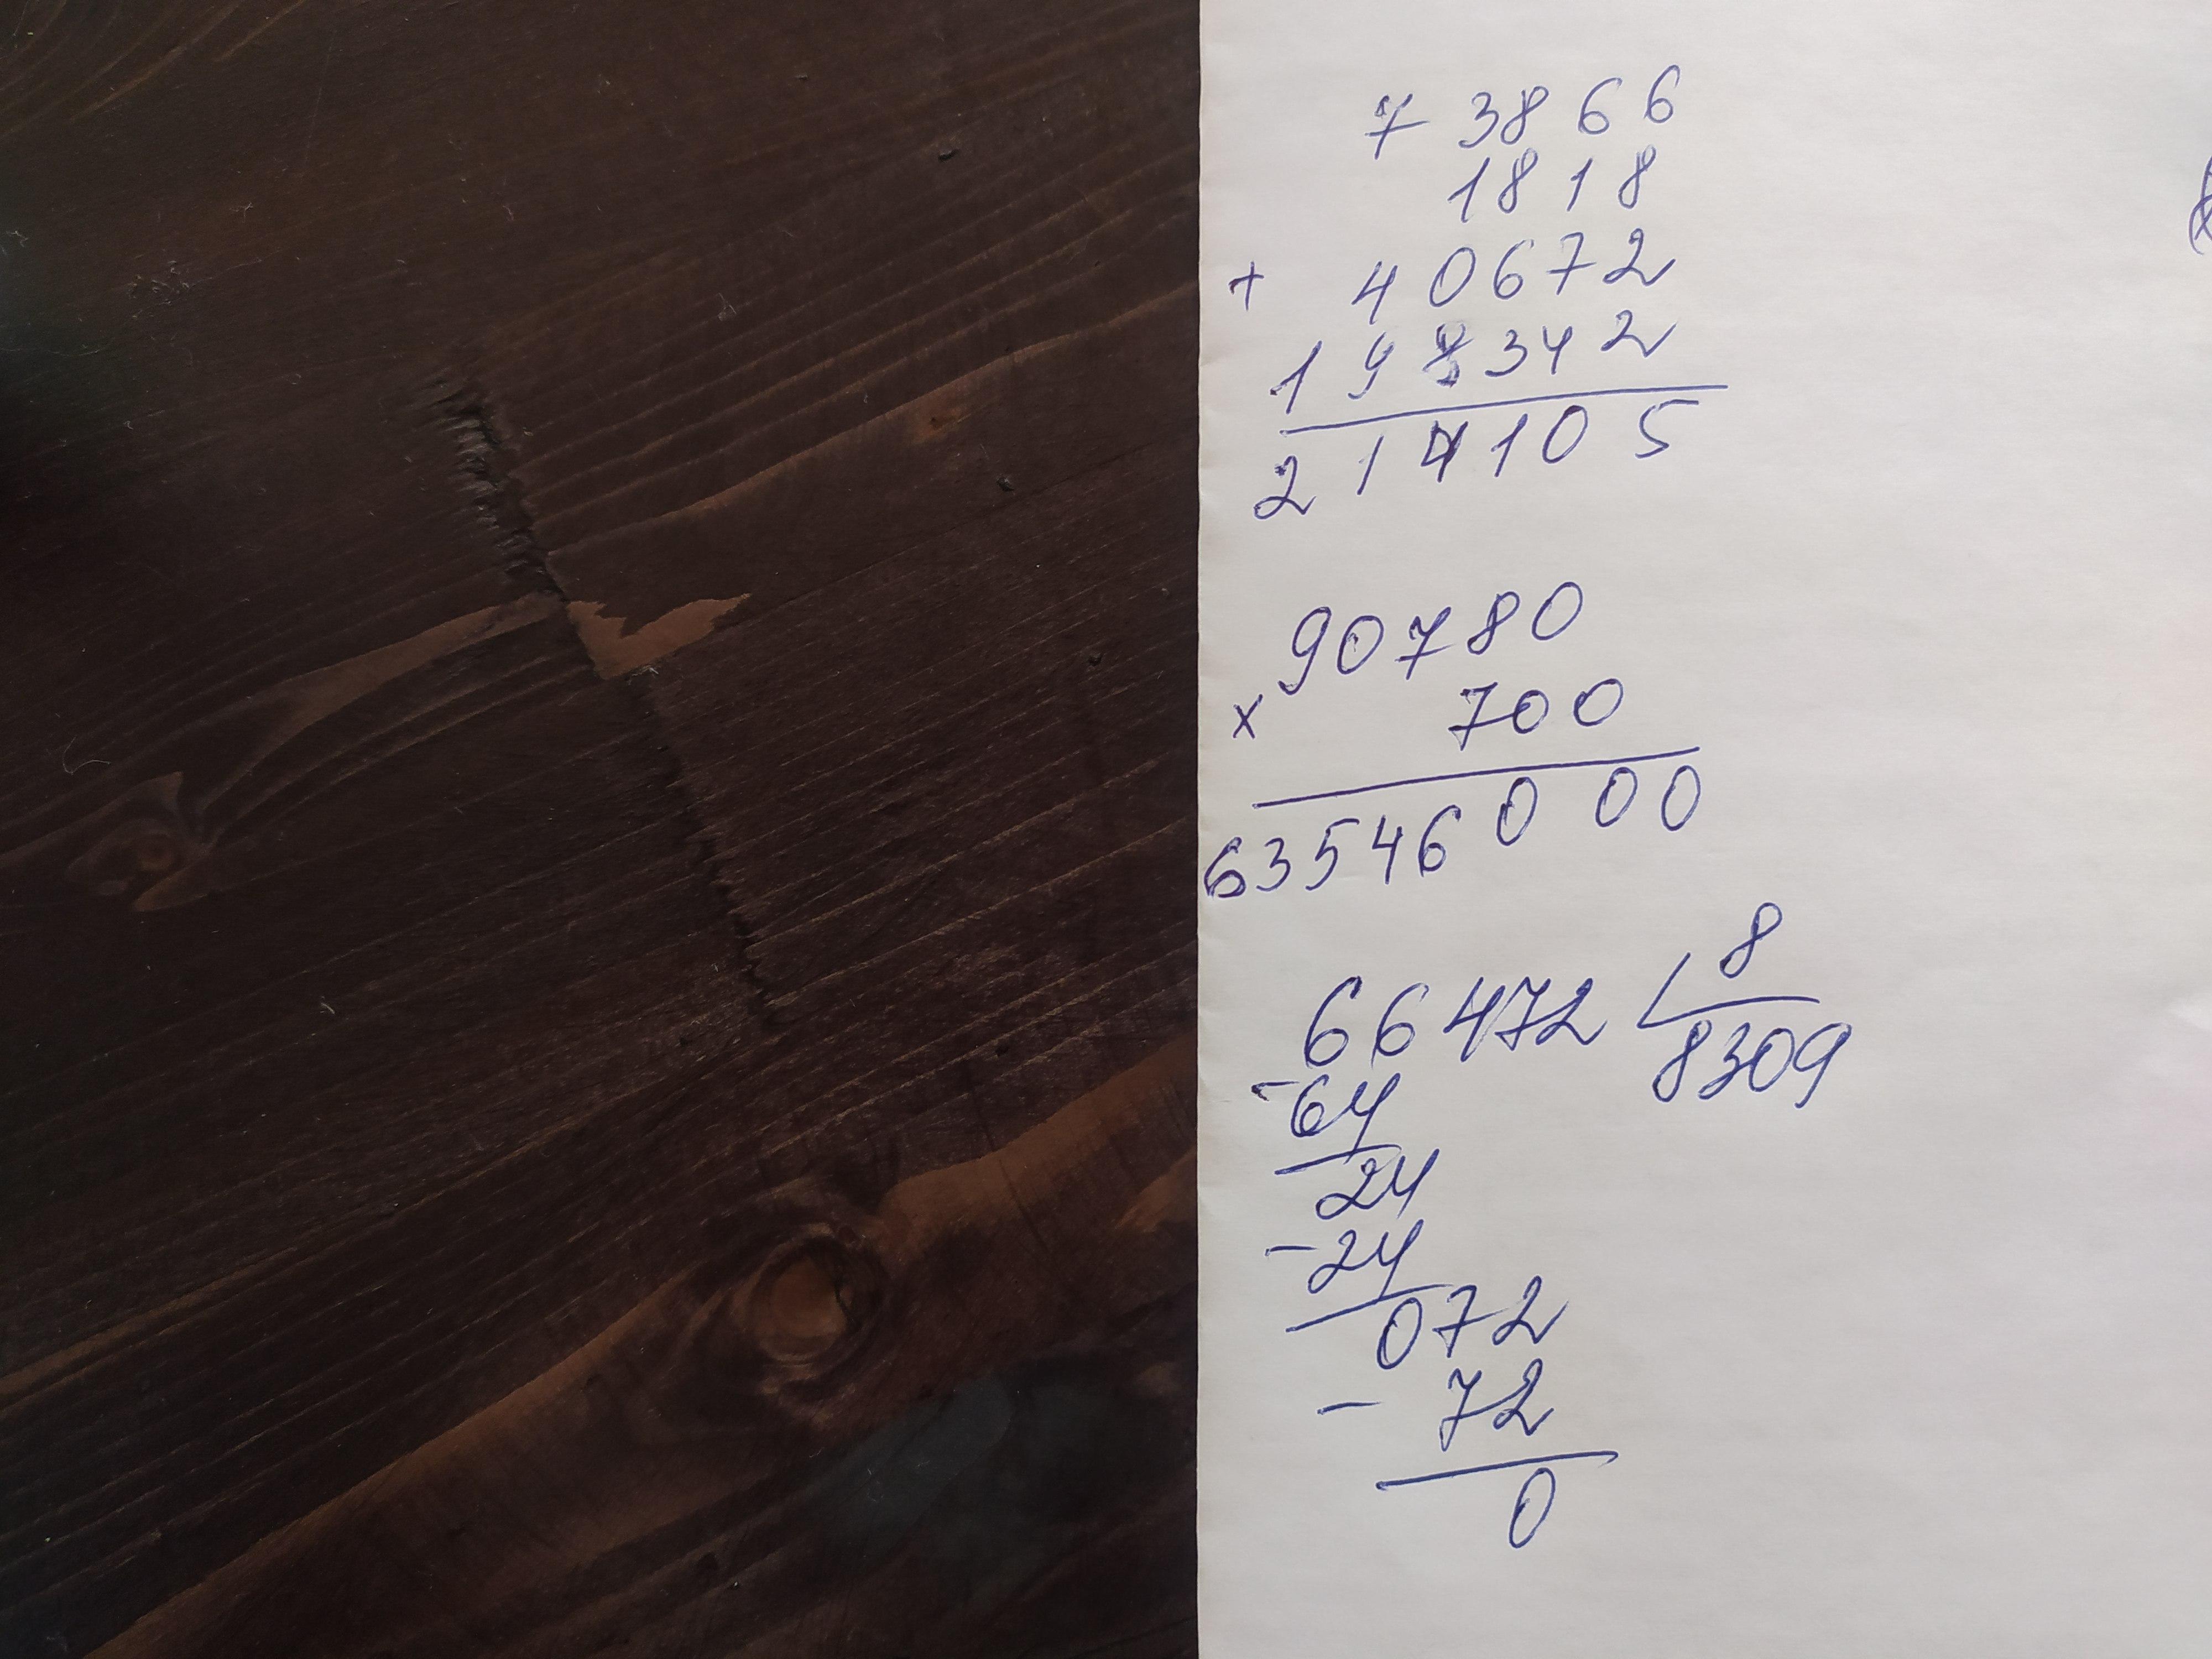 7 3 8 6 6
1 8 1 8
+ 4 0 6 7 2
1 9 8 3 4 2
2 1 4 1 0 5
90780
x 700
63546000
66472 8
8309
- 64
24
- 24
072
- 72
0